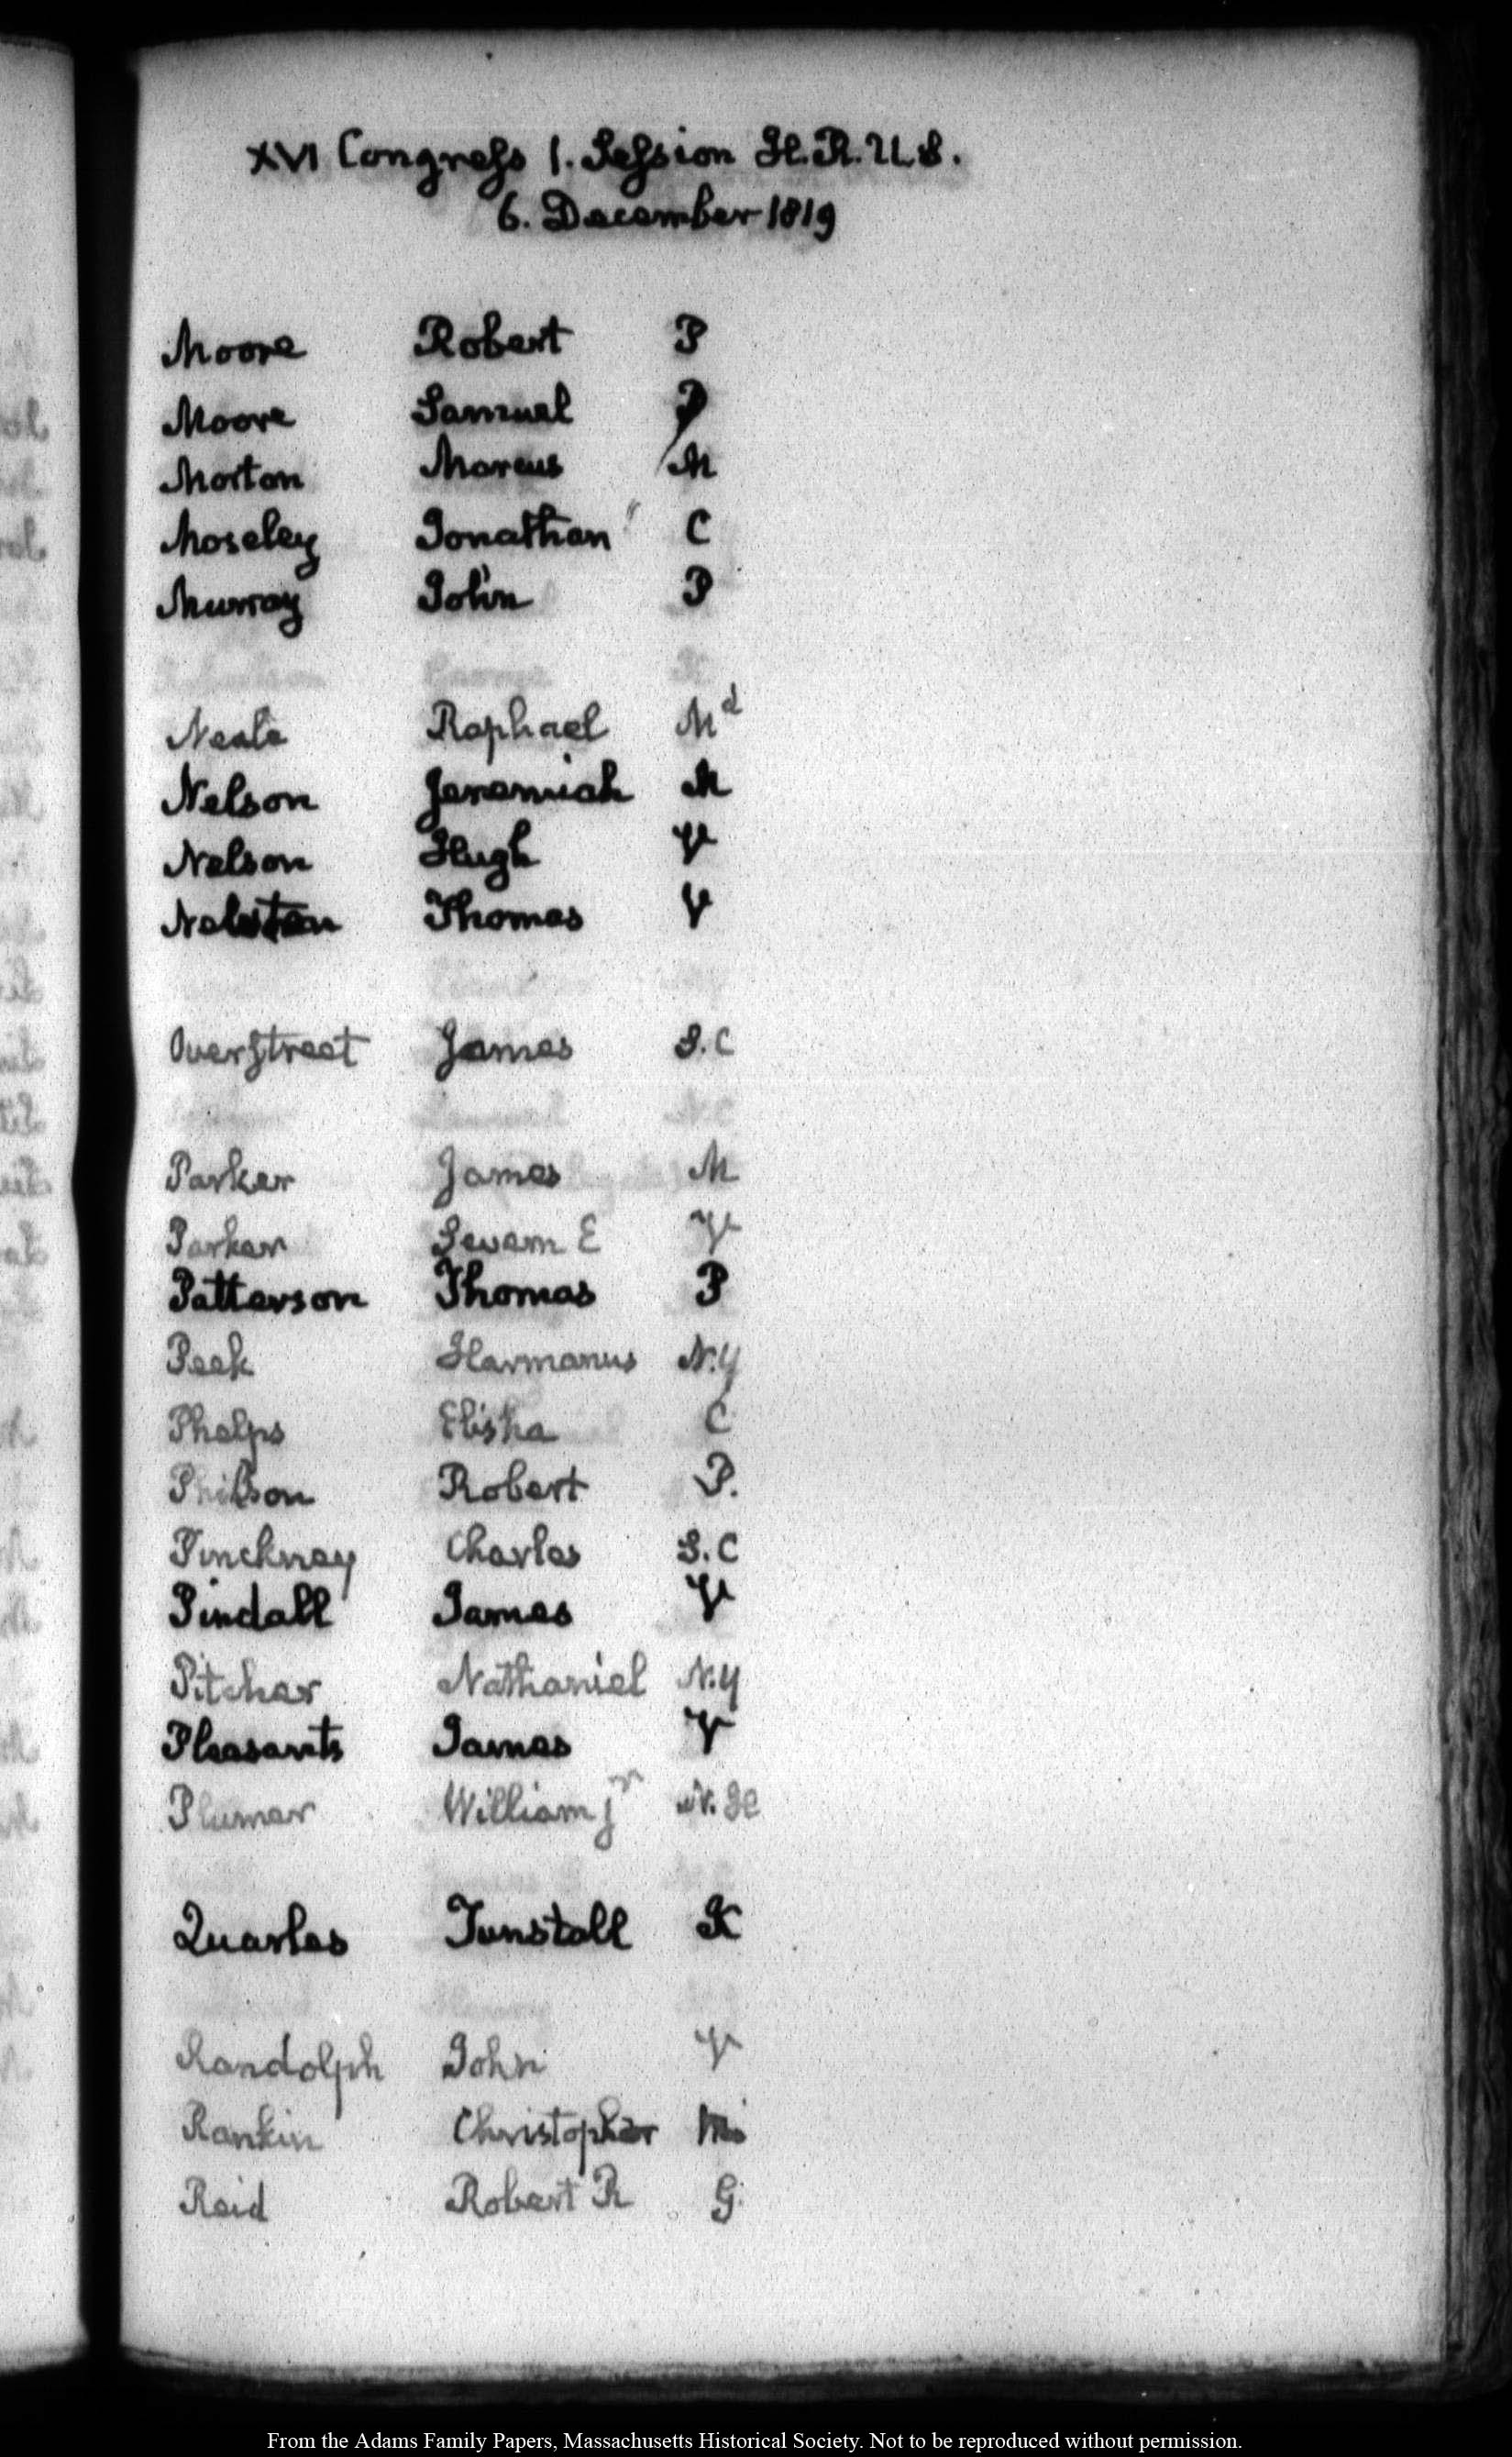 XVI Congress 1. Session H.R.U.S.
6. December 1819
Moore Robert P
Moore Samuel P
Morton Marcus M
Moseley Jonathan C
Murray John P
Neale Raphael Md
Nelson Jeremiah M
Nelson Hugh V
Thomas V
Overstreet James S.C
Parker James M
Parker Sevem E V
Patterson Thomas P
Peek Harmanus N.Y
Phelps Elisha C
Philson Robert P.
Pinckney Charles S.C
Pindall James V
Pitcher Nathaniel N.Y
Pleasants James V
Plumer William jr N.H
Quarles Tunstall K
Randolph John V
Rankin Christopher Mi
Reid Robert R G.
From the Adams Family Papers, Massachusetts Historical Society. Not to be reproduced without permission.